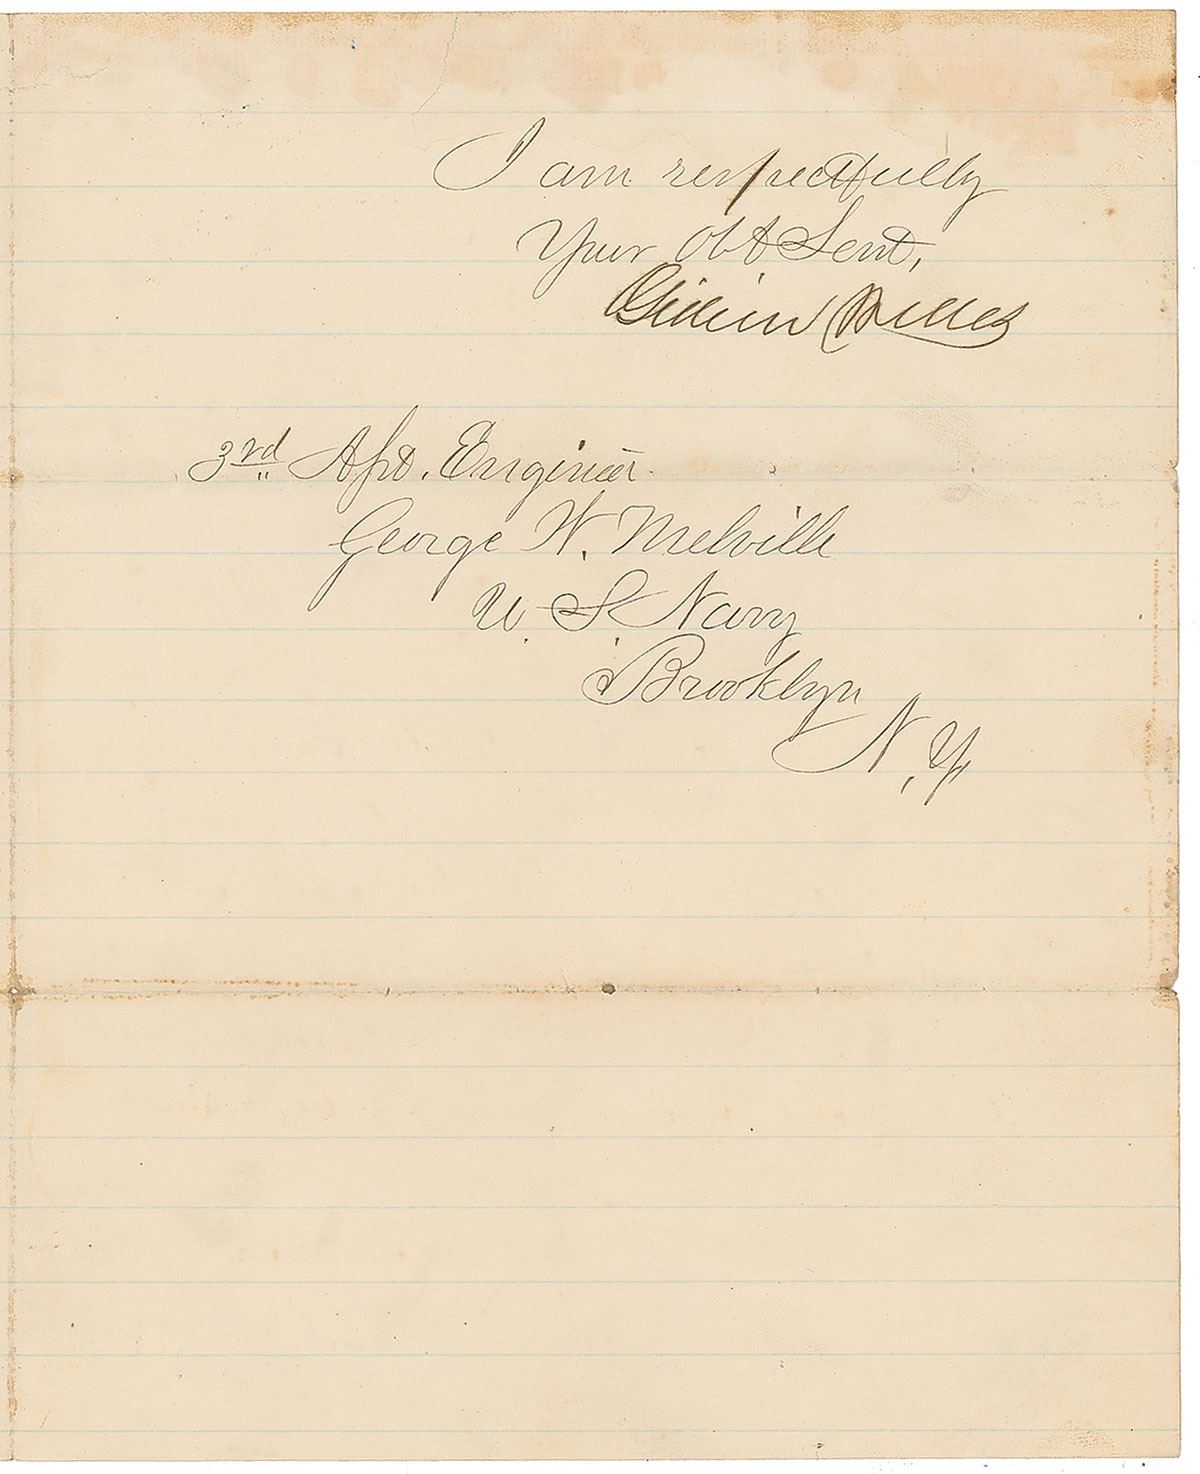 I am respectfully
Your Obt Servt,
Gideon Welles
3rd Asst. Engineer
George W. Melville
U. S. Navy
Brooklyn
N.Y.